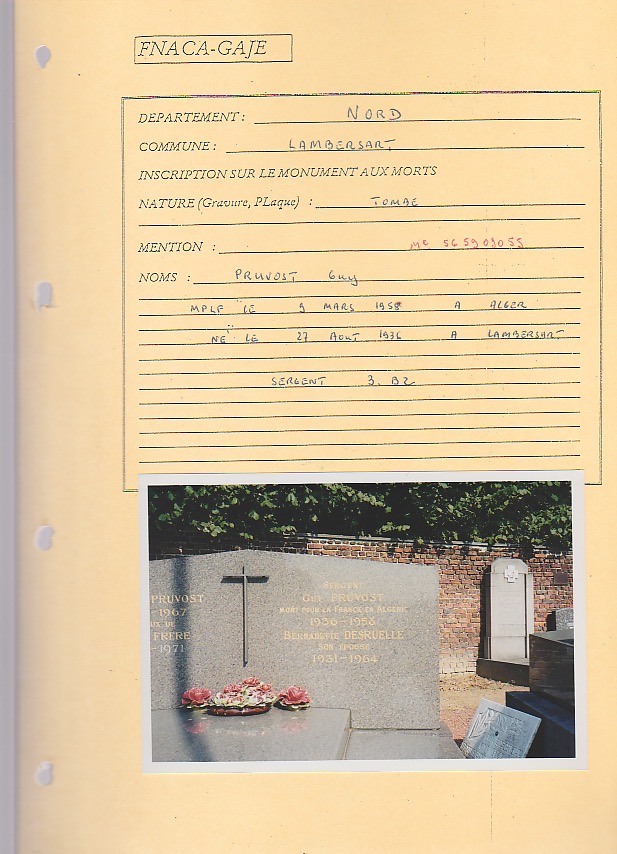 FNACA-GAJE
DEPARTEMENT : NORD
COMMUNE : LAMBERSART
INSCRIPTION SUR LE MONUMENT AUX MORTS
NATURE (Gravure, PLaque) : TOMBE
MENTION : Mle 565909055
NOMS : PRUVOST Guy
MPLF LE 9 MARS 1958 A ALGER
NE LE 27 AOUT 1936 A LAMBERSART
SERGENT 3. BZ
PRUVOST
-1967
UX DE
FRERE
-1971
SERGENT
GUY PRUVOST
MORT POUR LA FRANCE EN ALGERIE
1936-1958
BERNADETTE DESRUELLE
SON EPOUSE
1931-1964